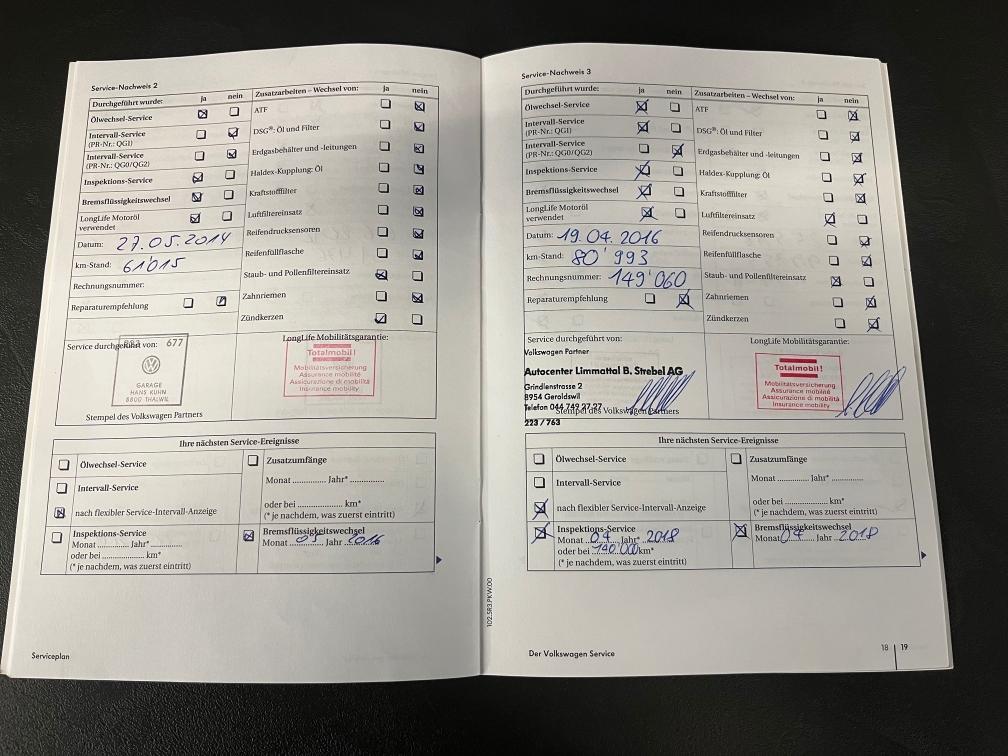 Service-Nachweis 2
Durchgeführt wurde: ja nein
Ölwechsel-Service
Intervall-Service
(PR-Nr.: QG1)
Intervall-Service
(PR-Nr.: QG0/QG2)
Inspektions-Service
Bremsflüssigkeitswechsel
LongLife Motoröl
verwendet
Datum: 27.05.2014
km-Stand: 61'015
Rechnungsnummer:
Reparaturempfehlung
Zusatzarbeiten – Wechsel von: ja nein
ATF
DSG®: Öl und Filter
Erdgasbehälter und -leitungen
Haldex-Kupplung: Öl
Kraftstofffilter
Luftfiltereinsatz
Reifendrucksensoren
Reifenfüllflasche
Staub- und Pollenfiltereinsatz
Zahnriemen
Zündkerzen
Service durchgeführt von:
677
GARAGE
HANS KUHN
8800 THALWIL
Stempel des Volkswagen Partners
LongLife Mobilitätsgarantie:
Totalmobil!
Mobilitätsversicherung
Assurance mobilité
Assicurazione di mobilità
Insurance mobility
Ihre nächsten Service-Ereignisse
Ölwechsel-Service
Intervall-Service
nach flexibler Service-Intervall-Anzeige
Zusatzumfänge
Monat ............ Jahr* ............
oder bei ............ km*
(* je nachdem, was zuerst eintritt)
Inspektions-Service
Monat ............ Jahr* ............
oder bei ............ km*
(* je nachdem, was zuerst eintritt)
Bremsflüssigkeitswechsel
Monat 05 Jahr 2016
Serviceplan
102.5R3.PKW.00
Service-Nachweis 3
Durchgeführt wurde: ja nein
Ölwechsel-Service
Intervall-Service
(PR-Nr.: QG1)
Intervall-Service
(PR-Nr.: QG0/QG2)
Inspektions-Service
Bremsflüssigkeitswechsel
LongLife Motoröl
verwendet
Datum: 19.04.2016
km-Stand: 80'993
Rechnungsnummer: 149'060
Reparaturempfehlung
Zusatzarbeiten – Wechsel von: ja nein
ATF
DSG®: Öl und Filter
Erdgasbehälter und -leitungen
Haldex-Kupplung: Öl
Kraftstofffilter
Luftfiltereinsatz
Reifendrucksensoren
Reifenfüllflasche
Staub- und Pollenfiltereinsatz
Zahnriemen
Zündkerzen
Service durchgeführt von:
Volkswagen Partner
Autocenter Limmattal B. Strebel AG
Grindlenstrasse 2
8954 Geroldswil
Telefon 044 749 27 27
Stempel des Volkswagen Partners
223 / 763
LongLife Mobilitätsgarantie:
Totalmobil!
Mobilitätsversicherung
Assurance mobilité
Assicurazione di mobilità
Insurance mobility
Ihre nächsten Service-Ereignisse
Ölwechsel-Service
Intervall-Service
nach flexibler Service-Intervall-Anzeige
Zusatzumfänge
Monat ............ Jahr* ............
oder bei ............ km*
(* je nachdem, was zuerst eintritt)
Inspektions-Service
Monat 04 Jahr* 2018
oder bei 140'000 km*
(* je nachdem, was zuerst eintritt)
Bremsflüssigkeitswechsel
Monat 04 Jahr 2018
Der Volkswagen Service
18 | 19